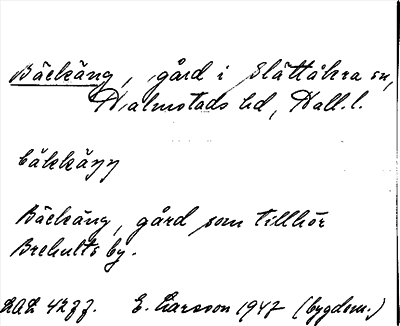 Bäckäng, gård i Slättåkra sn,
Halmstads hd, Hall. l.
bäkkäŋ
Bäckäng, gård som tillhör
Brehults by.
E. Larsson 1947 (bygdem.)